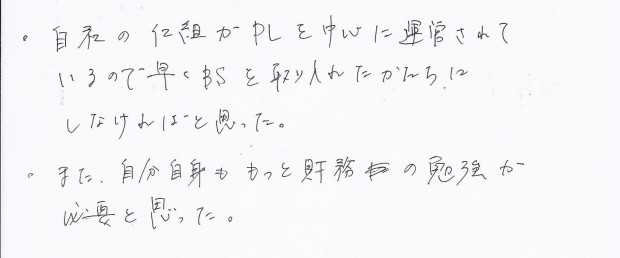 ・自社の仕組がPLを中心に運営されて
いるので早くBSを取り入れたかたちに
しなければと思った。
・また、自分自身ももっと財務の勉強が
必要と思った。